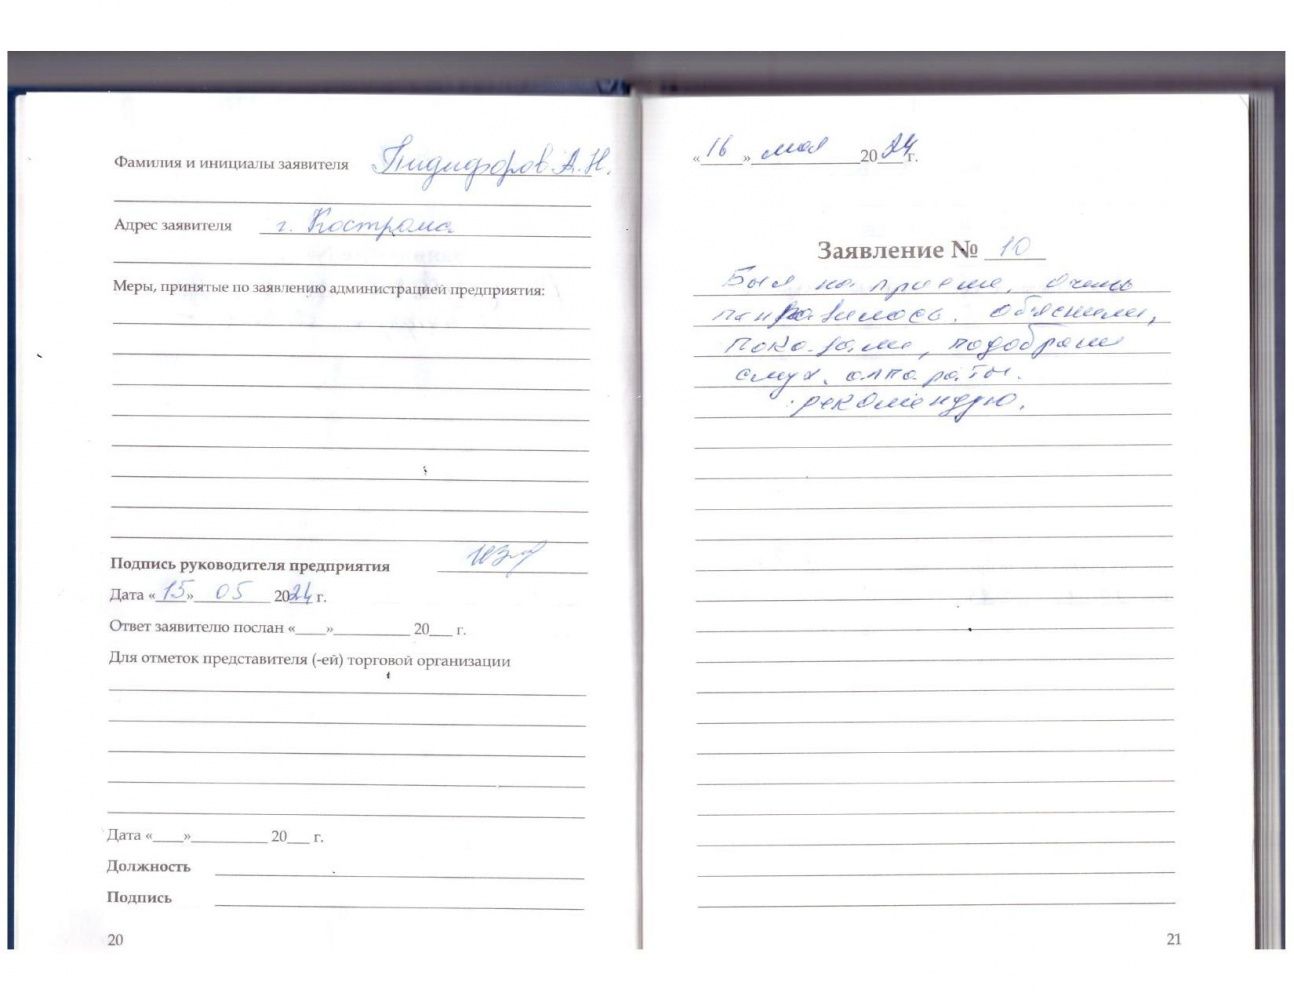 Фамилия и инициалы заявителя А.Н.
Адрес заявителя г. Кострома
Меры, принятые по заявлению администрацией предприятия:
Подпись руководителя предприятия
Дата «15» 05 2024 г.
Ответ заявителю послан «____»__________ 20___ г.
Для отметок представителя (-ей) торговой организации
Дата «____»__________ 20___ г.
Должность
Подпись
20
«16» мая 2024 г.
Заявление № 10
Был на приеме, очень
понравилось. объяснили,
показали, подобрали
слух. аппараты.
рекомендую.
21